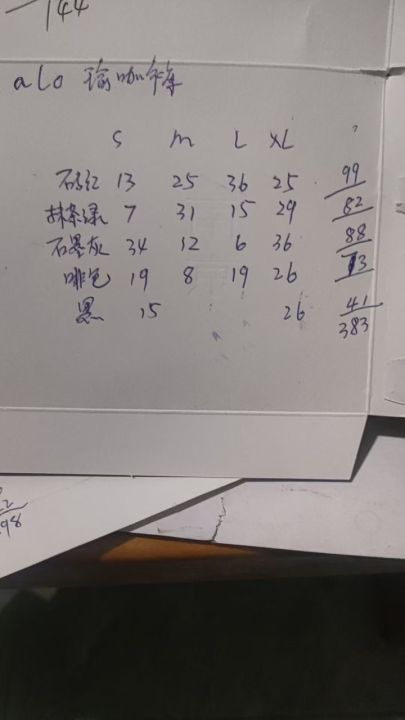 144
alo 瑜咖裤
S M L XL
石砖红 13 25 36 25 99
抹茶绿 7 31 15 29 82
石墨灰 34 12 6 36 88
啡色 19 8 19 26 73
黑 15 26 41
383
98